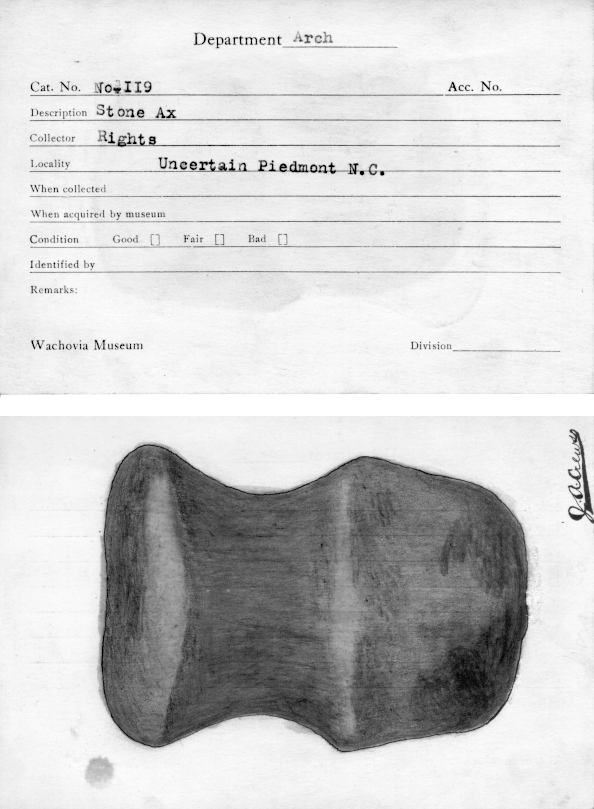 Department Arch
Cat. No. No.II9 Acc. No.
Description Stone Ax
Collector Rights
Locality Uncertain Piedmont N.C.
When collected
When acquired by museum
Condition Good [] Fair [] Bad []
Identified by
Remarks:
Wachovia Museum Division
J.A. Crews